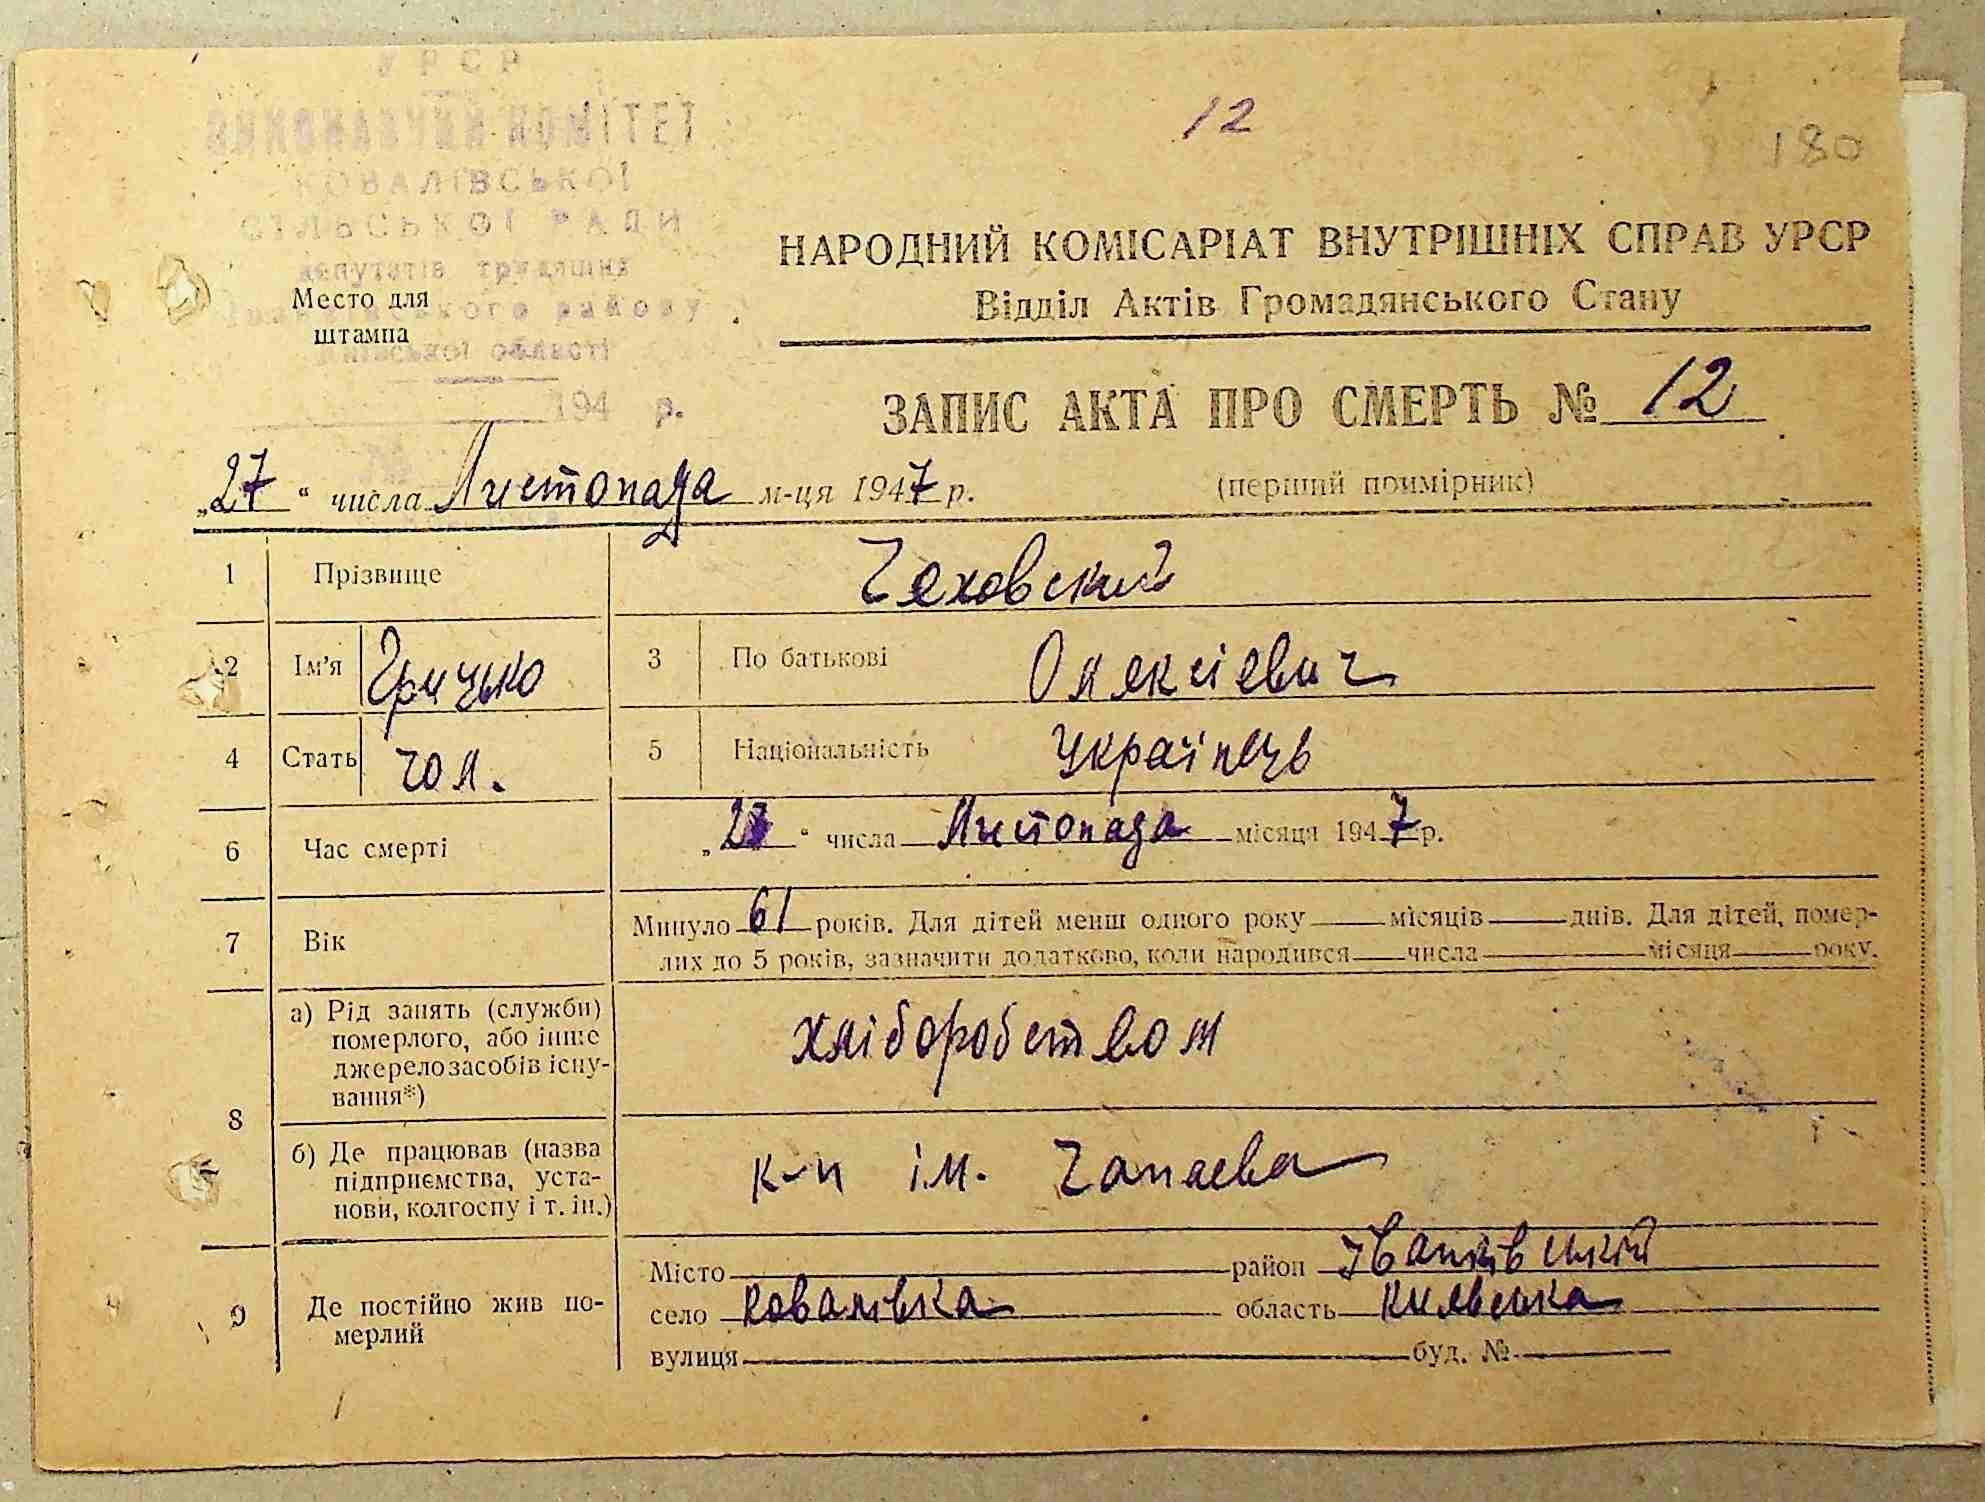 УРСР
ВИКОНАВЧИЙ КОМІТЕТ
КОВАЛІВСЬКОЇ
СІЛЬСЬКОЇ РАДИ
депутатів трудящих
району
Київської області
194 р.
12
180
Место для
штампа
НАРОДНИЙ КОМІСАРІАТ ВНУТРІШНІХ СПРАВ УРСР
Відділ Актів Громадянського Стану
ЗАПИС АКТА ПРО СМЕРТЬ № 12
„27“ числа Листопада м-ця 1947 р. (перший примірник)
1 Прізвище Чеховский
2 Ім'я Грицько 3 По батькові Олексієвич
4 Стать чол. 5 Національність Українець
6 Час смерті „ “ числа Листопада місяця 1947 р.
7 Вік Минуло 61 років. Для дітей менш одного року місяців днів. Для дітей, помер-
лих до 5 років, зазначити додатково, коли народився числа місяця року.
8 а) Рід занять (служби)
померлого, або інше
джерело засобів існу-
вання*)
хліборобством
б) Де працював (назва
підприємства, уста-
нови, колгоспу і т. ін.)
к-п ім. Чапаева
9 Де постійно жив по-
мерлий
Місто район Іванківський
село Ковалівка область Київська
вулиця буд. №